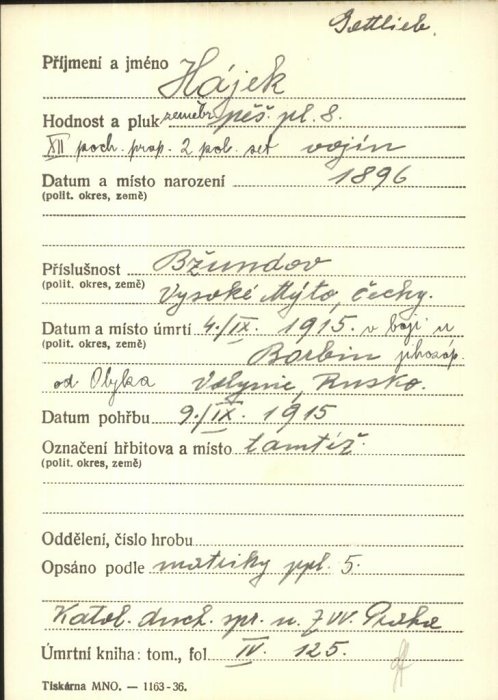 Gottlieb.
Příjmení a jméno Hájek
Hodnost a pluk zeměbr. pěš. pl. 8.
XII poch. prap. 2 pol. set vojín
Datum a místo narození 1896
(polit. okres, země)
Příslušnost Bžundov
(polit. okres, země)
Vysoké Mýto, Čechy.
Datum a místo úmrtí 4./IX. 1915. v boji u
(polit. okres, země)
Borbin jihozáp.
od Olyka Volynie, Rusko.
Datum pohřbu 9./IX. 1915
Označení hřbitova a místo tamtéž.
(polit. okres, země)
Oddělení, číslo hrobu
Opsáno podle matriky ppl. 5.
Katol. duch. spr. u ZVV. Praha
Úmrtní kniha: tom., fol. IV. 125.
Tiskárna MNO. — 1163-36.